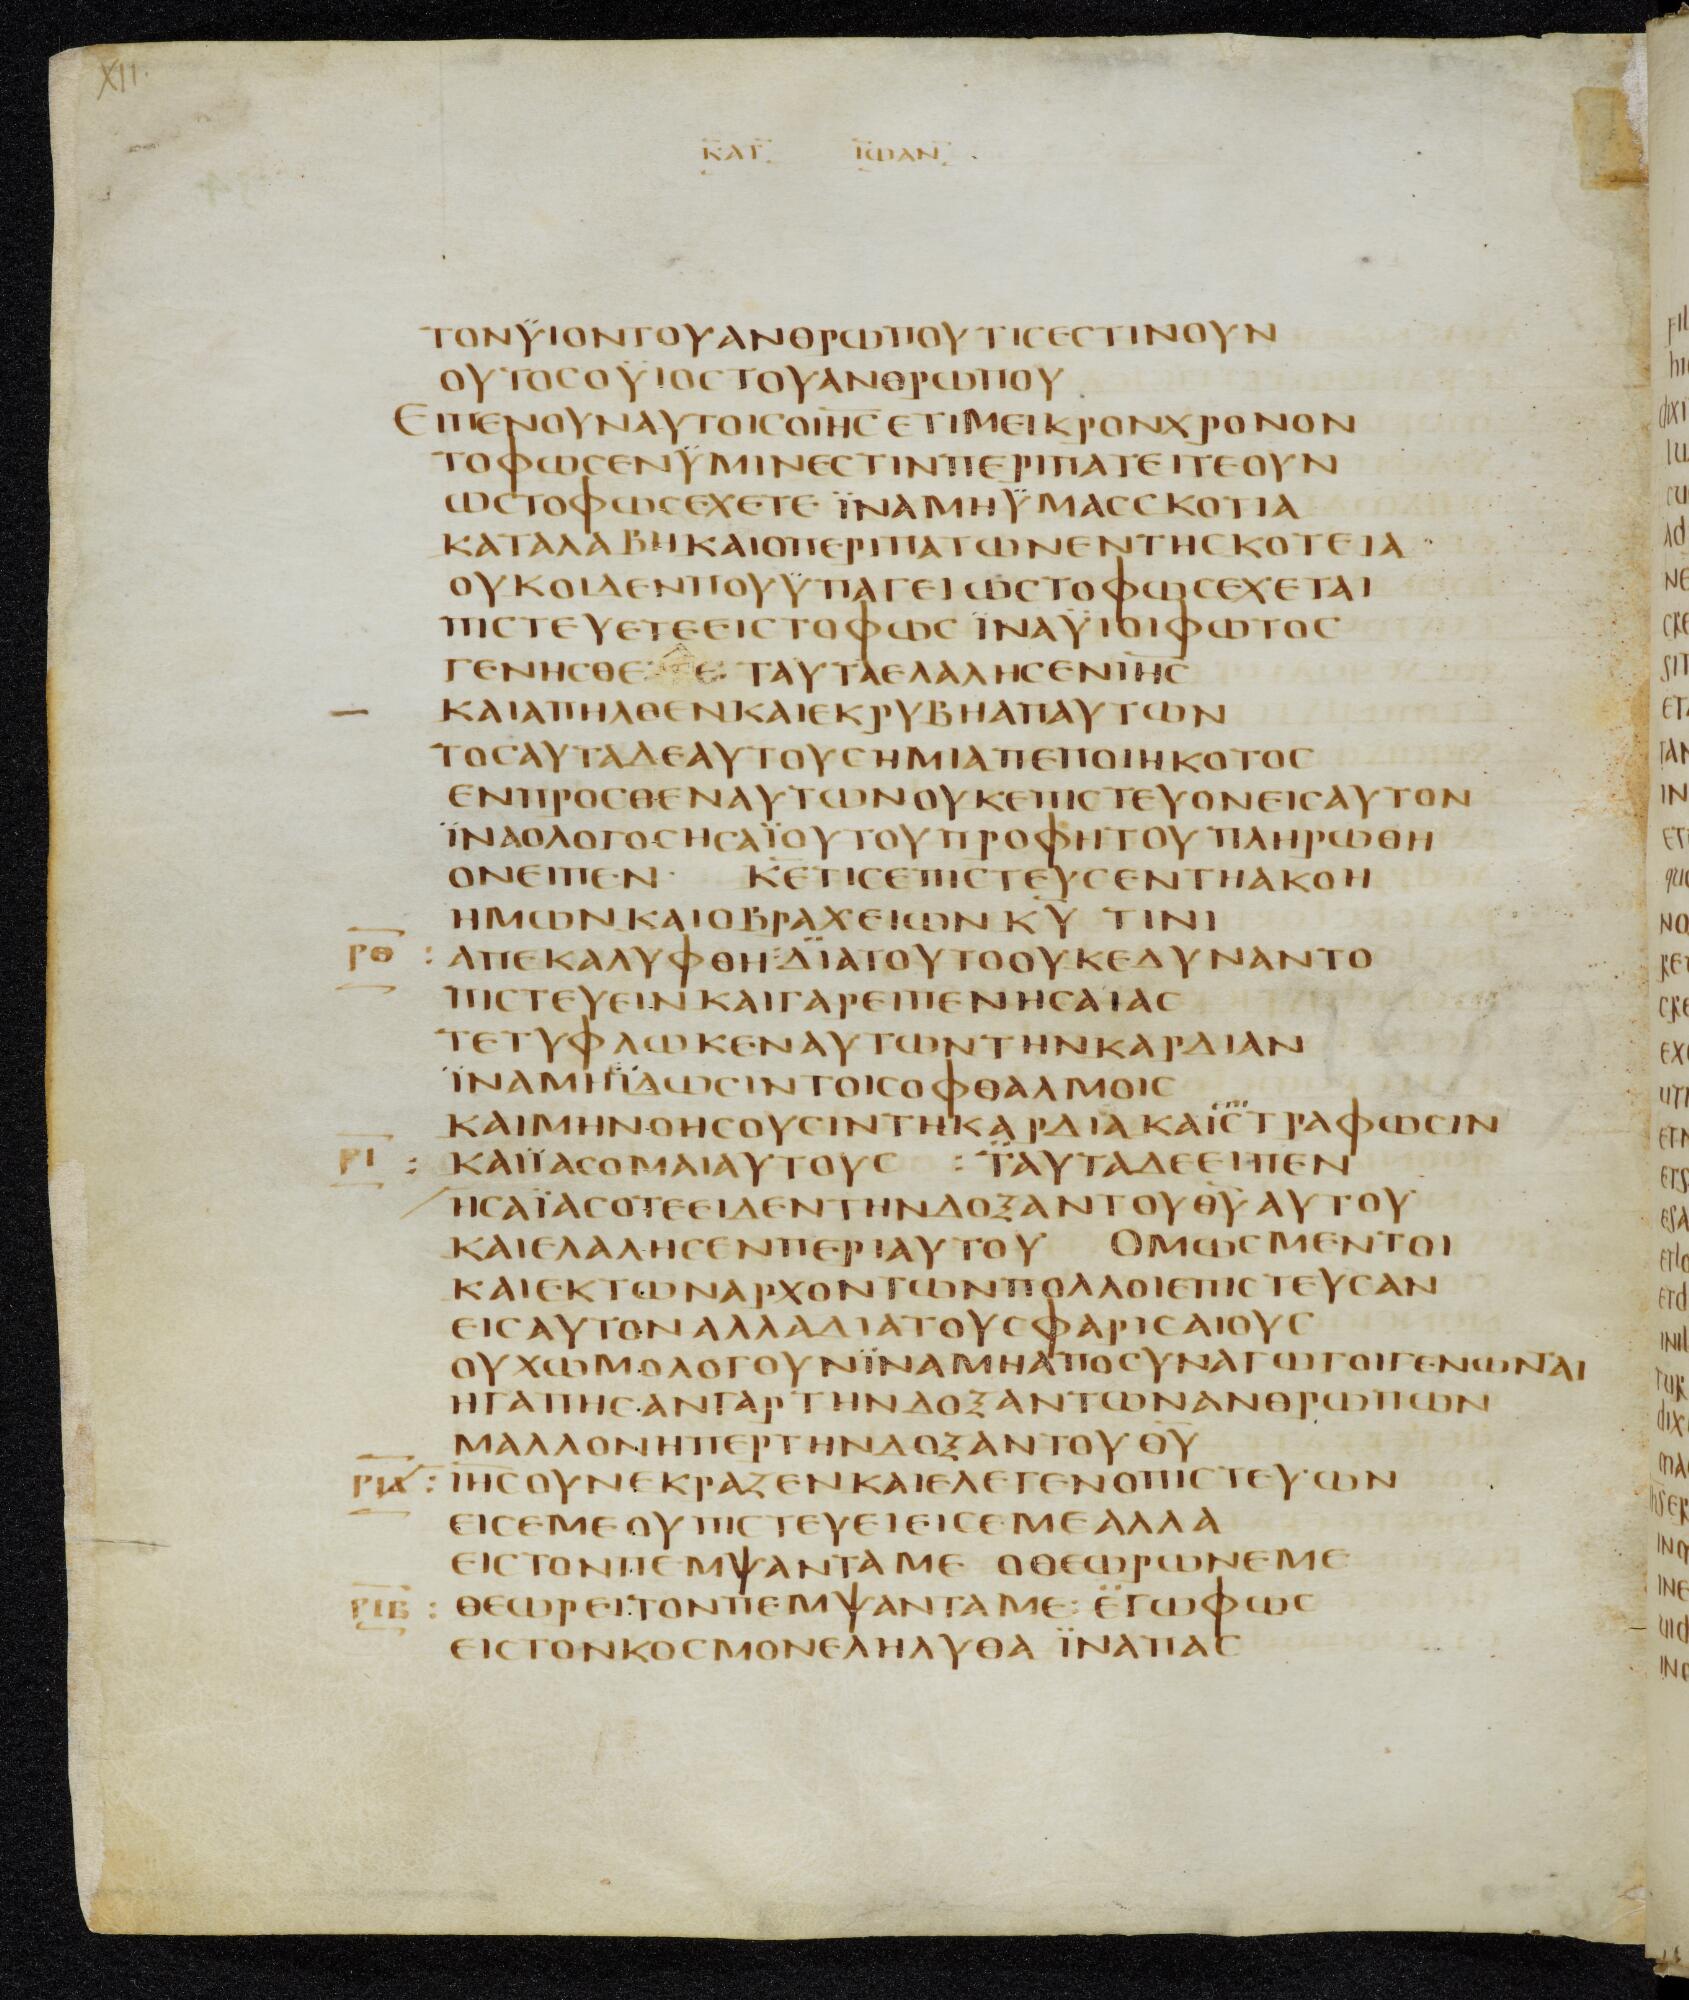 XII.
ΚΑΤ ΙΩΑΝ
ΤΟΝΫΙΟΝΤΟΥΑΝΘΡΩΠΟΥΤΙCΕCΤΙΝΟΥΝ
ΟΥΤΟCΟΫΙΟCΤΟΥΑΝΘΡΩΠΟΥ
ΕΙΠΕΝΟΥΝΑΥΤΟΙCΟΙΗC ΕΤΙΜΕΙΚΡΟΝΧΡΟΝΟΝ
ΤΟΦΩCΕΝΫΜΙΝΕCΤΙΝΠΕΡΙΠΑΤΕΙΤΕΟΥΝ
ΩCΤΟΦΩCΕΧΕΤΕ ΪΝΑΜΗΫΜΑCCΚΟΤΙΑ
ΚΑΤΑΛΑΒΗΚΑΙΟΠΕΡΙΠΑΤΩΝΕΝΤΗCΚΟΤΕΙΑ
ΟΥΚΟΙΔΕΝΠΟΥΫΠΑΓΕΙΩCΤΟΦΩCΕΧΕΤΑΙ
ΠΙCΤΕΥΕΤΕΕΙCΤΟΦΩC ΪΝΑΫΙΟΙΦΩΤΟC
ΓΕΝΗCΘΕ ΤΕ ΤΑΥΤΑΕΛΑΛΗCΕΝΙΗC
ΚΑΙΑΠΗΛΘΕΝΚΑΙΕΚΡΥΒΗΑΠΑΥΤΩΝ
ΤΟCΑΥΤΑΔΕΑΥΤΟΥCΗΜΙΑΠΕΠΟΙΗΚΟΤΟC
ΕΝΠΡΟCΘΕΝΑΥΤΩΝΟΥΚΕΠΙCΤΕΥΟΝΕΙCΑΥΤΟΝ
ΪΝΑΟΛΟΓΟCΗCΑΪΟΥΤΟΥΠΡΟΦΗΤΟΥΠΛΗΡΩΘΗ
ΟΝΕΙΠΕΝ· ΚΕΤΙCΕΠΙCΤΕΥCΕΝΤΗΑΚΟΗ
ΗΜΩΝΚΑΙΟΒΡΑΧΕΙΩΝΚΥ ΤΙΝΙ
ΡΘ : ΑΠΕΚΑΛΥΦΘΗ:ΔΪΑΤΟΥΤΟΟΥΚΕΔΥΝΑΝΤΟ
ΠΙCΤΕΥΕΙΝΚΑΙΓΑΡΕΙΠΕΝΗCΑΙΑC
ΤΕΤΥΦΛΩΚΕΝΑΥΤΩΝΤΗΝΚΑΡΔΙΑΝ
ΪΝΑΜΗΪΔΩCΙΝΤΟΙCΟΦΘΑΛΜΟΙC
ΚΑΙΜΗΝΟΗCΟΥCΙΝΤΗΚΑΡΔΙΑΚΑΙCΤΡΑΦΩCΙΝ
ΡΙ : ΚΑΙΪΑCΟΜΑΙΑΥΤΟΥC : ΤΑΥΤΑΔΕΕΙΠΕΝ
ΗCΑΪΑCΟΤΕΕΙΔΕΝΤΗΝΔΟΞΑΝΤΟΥΘΥΑΥΤΟΥ
ΚΑΙΕΛΑΛΗCΕΝΠΕΡΙΑΥΤΟΥ ΟΜΩCΜΕΝΤΟΙ
ΚΑΙΕΚΤΩΝΑΡΧΟΝΤΩΝΠΟΛΛΟΙΕΠΙCΤΕΥCΑΝ
ΕΙCΑΥΤΟΝΑΛΛΑΔΙΑΤΟΥCΦΑΡΙCΑΙΟΥC
ΟΥΧΩΜΟΛΟΓΟΥΝΪΝΑΜΗΑΠΟCΥΝΑΓΩΓΟΙΓΕΝΩΝΤΑΙ
ΗΓΑΠΗCΑΝΓΑΡΤΗΝΔΟΞΑΝΤΩΝΑΝΘΡΩΠΩΝ
ΜΑΛΛΟΝΗΠΕΡΤΗΝΔΟΞΑΝΤΟΥΘΥ
ΡΙΑ : ΙΗCΟΥΝΕΚΡΑΖΕΝΚΑΙΕΛΕΓΕΝΟΠΙCΤΕΥΩΝ
ΕΙCΕΜΕΟΥΠΙCΤΕΥΕΙΕΙCΕΜΕΑΛΛΑ
ΕΙCΤΟΝΠΕΜΨΑΝΤΑΜΕ ΟΘΕΩΡΩΝΕΜΕ
ΡΙΒ : ΘΕΩΡΕΙΤΟΝΠΕΜΨΑΝΤΑΜΕ: ΕΓΩΦΩC
ΕΙCΤΟΝΚΟCΜΟΝΕΛΗΛΥΘΑ ΪΝΑΠΑC